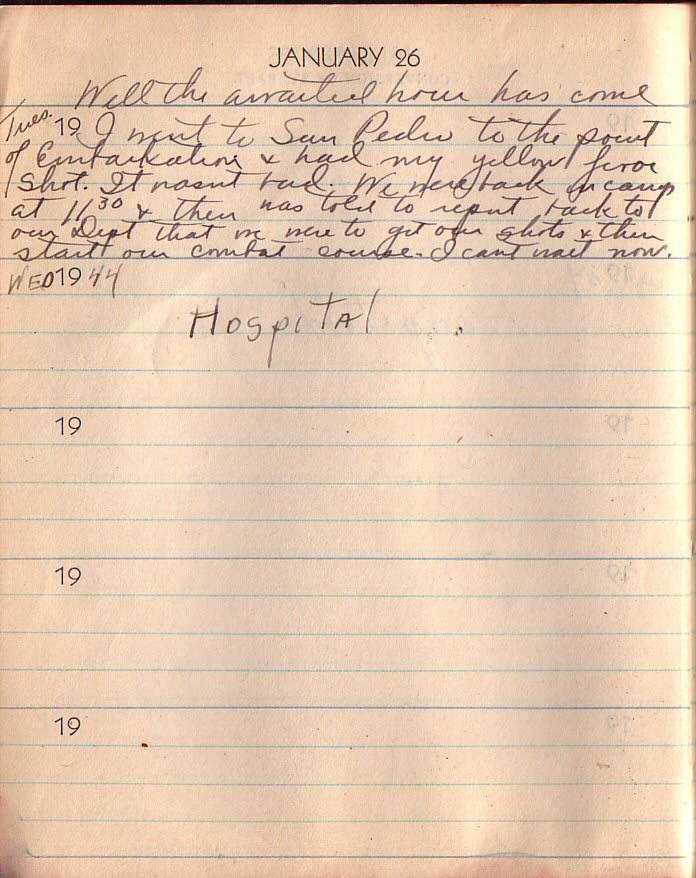 JANUARY 26
Well the awaited hour has come
Tues. 19 I went to San Pedro to the point
of Embarkation & had my yellow fever
shot. It wasnt bad. We were back in camp
at 11 30 & then was told to report back to
our Dept that we were to get our shots & then
start our combat course. I cant wait now.
WED 1944
Hospital
19
19
19